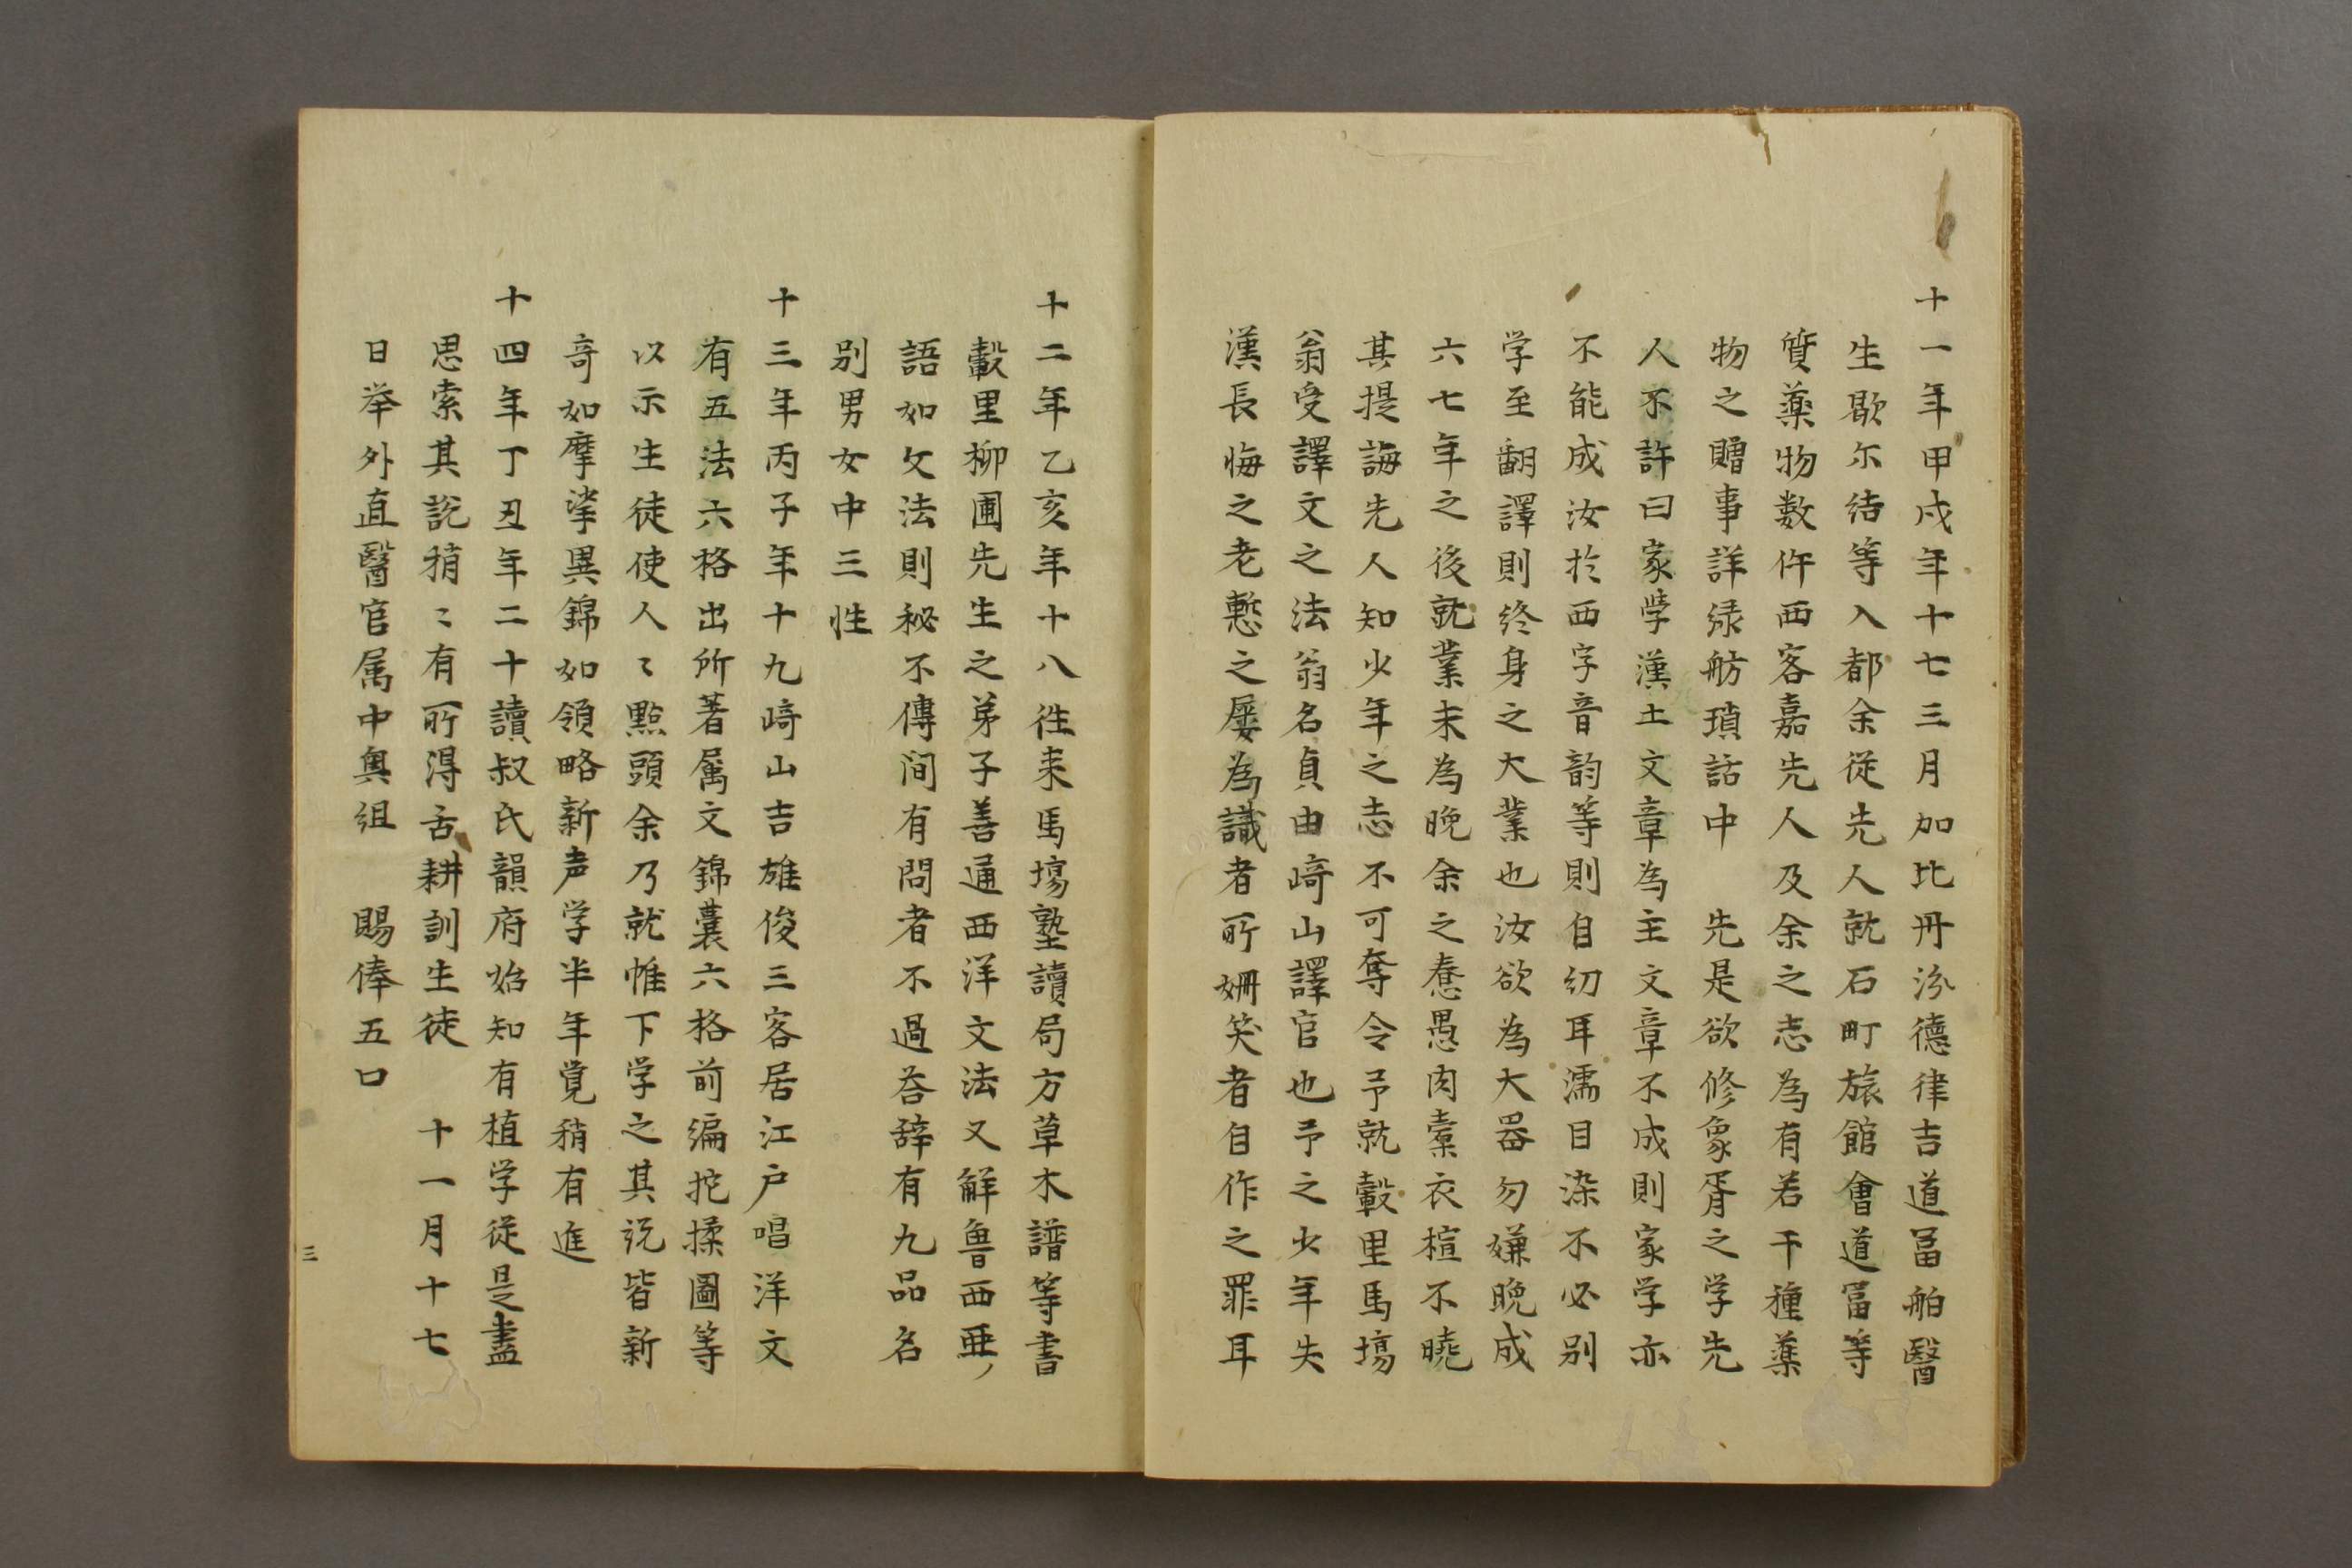 十一年甲戌年十七三月加比丹汾德律吉道冨舶醫
生歇尔結等入都余従先人就石町旅館會道冨等
質薬物数件西客嘉先人及余之志為有若干種薬
物之贈事詳緑舫瑣話中　先是欲修象胥之学先
人不許曰家學漢土文章為主文章不成則家学亦
不能成汝扵西字音韵等則自幻耳濡目染不必别
学至翻譯則終身之大業也汝欲為大器勿嫌晩成
六七年之後就業未為晩余之惷愚肉橐衣楦不曉
其提誨先人知少年之志不可奪令予就轂里馬塲
翁受譯文之法翁名貞由﨑山譯官也予之少年失
漢長悔之老慙之屡為識者所姍笑者自作之罪耳
十二年乙亥年十八徃来馬塲塾讀局方草木譜等書
轂里柳圃先生之弟子善通西洋文法又解魯西亜
語如文法則秘不傳间有問者不過荅辞有九品名
别男女中三性
十三年丙子年十九﨑山吉雄俊三客居江户唱洋文
有五法六格出所著属文錦囊六格前編挓揉圖等
以示生徒使人〻點頭余乃就帷下学之其説皆新
竒如摩挲異錦如領略新声学半年覚稍有進
十四年丁丑年二十讀叔氏韻府始知有植学従是盡
思索其説稍〻有所得舌耕訓生徒　十一月十七
日举外直醫官属中奥组　賜俸五口
三